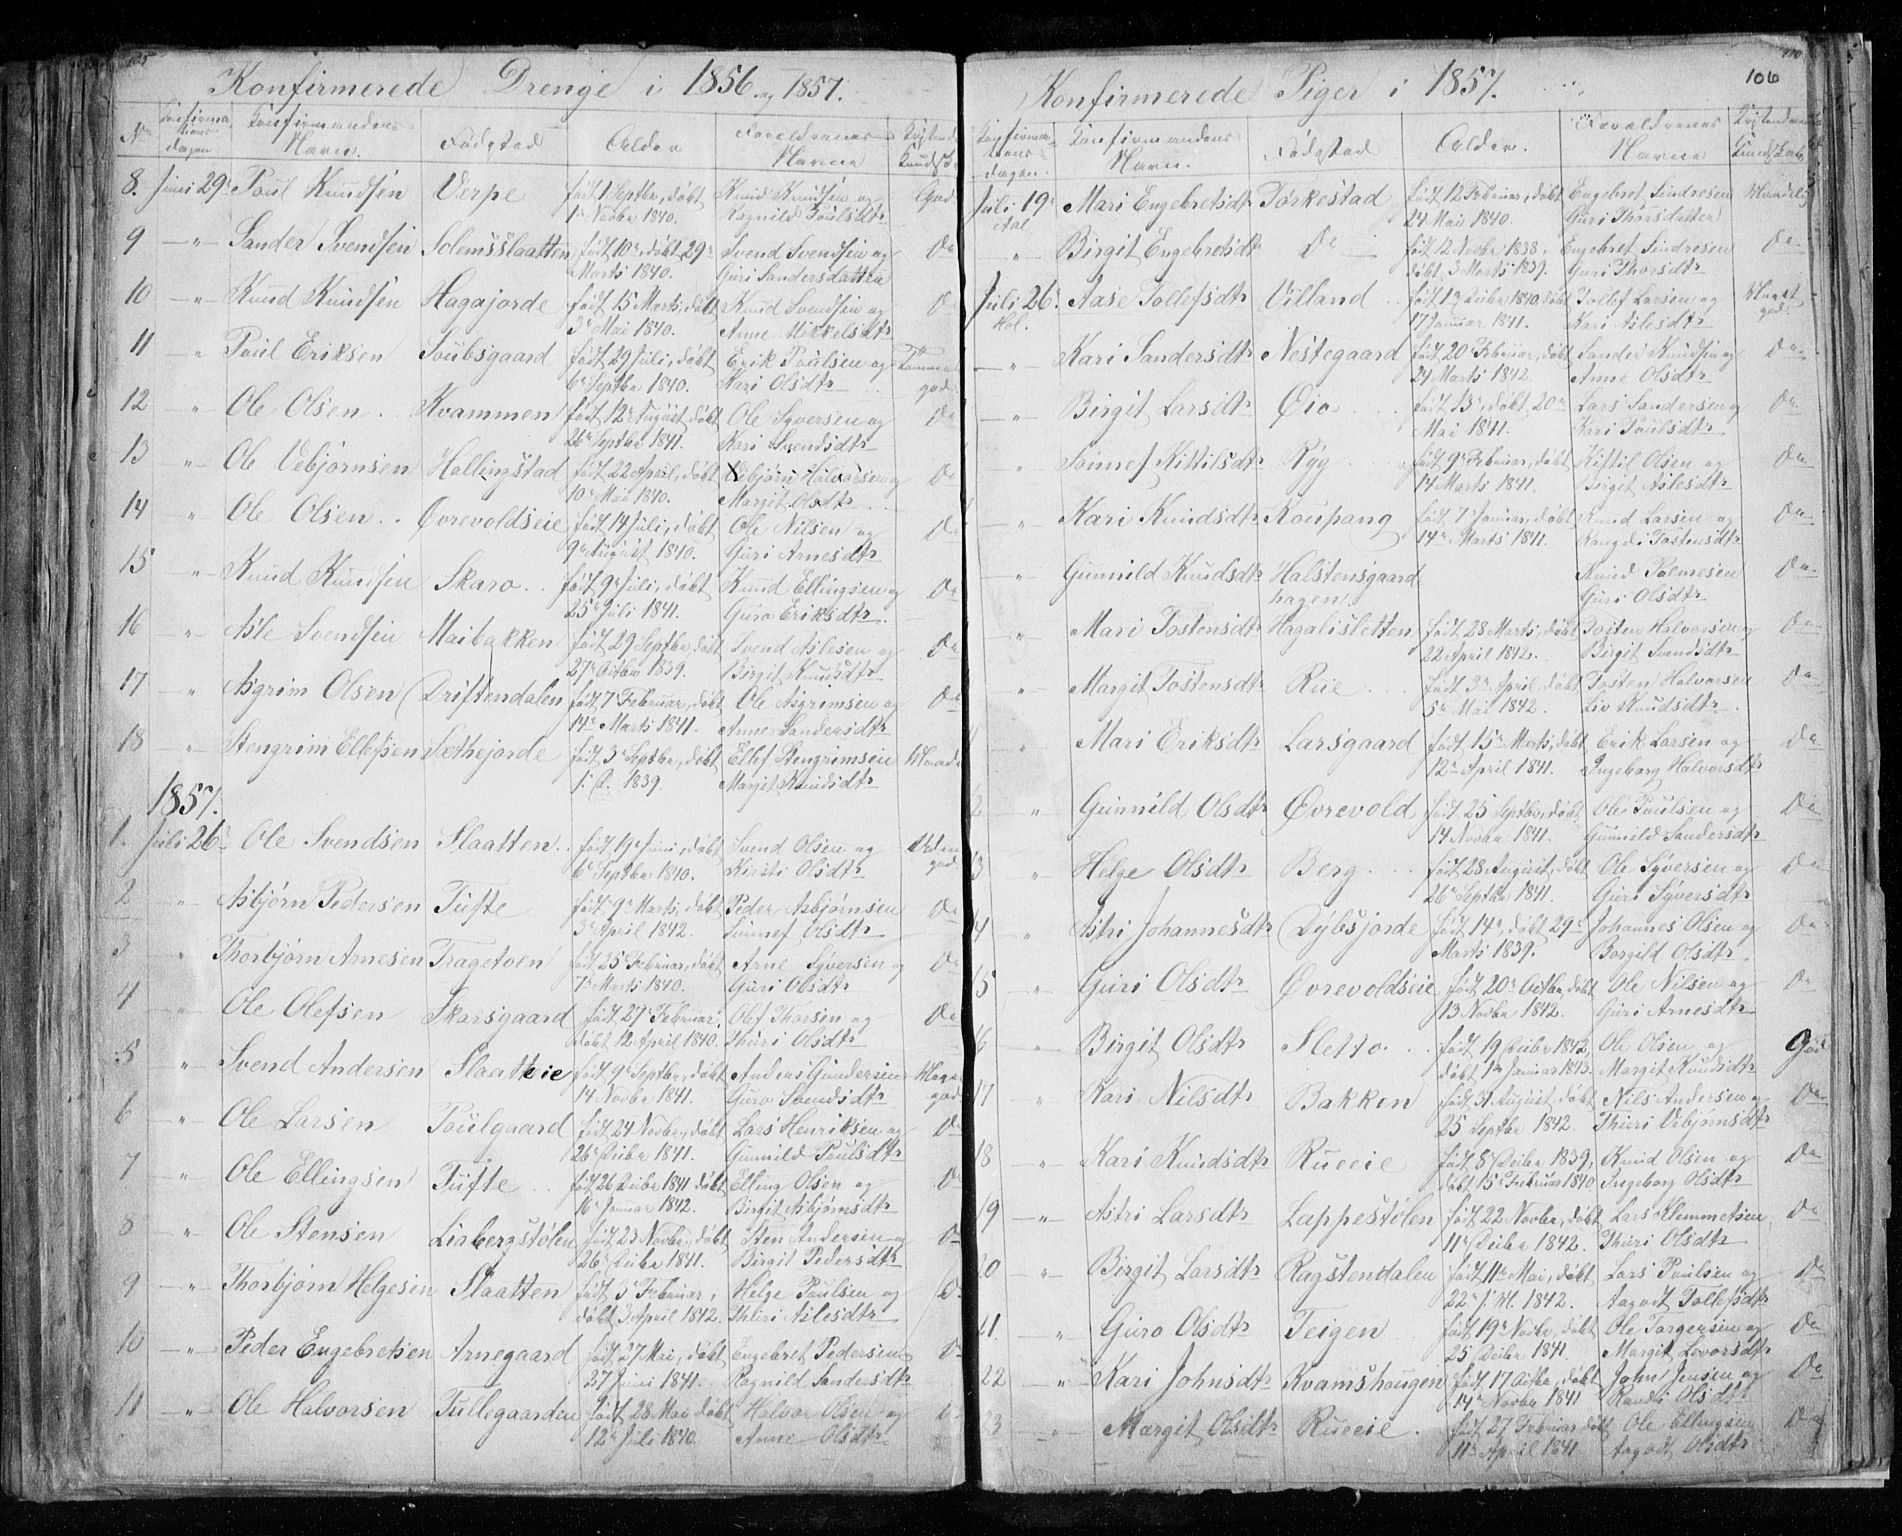 105
Konfirmerede Drenge i 1856 og 1857.
No Konfirma-tions-dagen Konfirmandens Navn. Fødestad Alder Forældrenes Navne Kristend. Kundsk.
8. Juni 29. Poul Knudsen Verpe født 1 Septbr, døbt Knud Knudsen og God.
1 Novbr 1840. Ragnild Poulsdtr
9 —"— Sander Svendsen Solemsslaatten født 10, døbt 29 Svend Svendsen og Do
Marts 1840. Guri Sandersdatter
10 —"— Knud Knudsen Hagajorde født 15 Marts, døbt Knud Svendsen og Do
3 Mai 1840. Anne Mikkelsdtr
11 " Poul Eriksen Soubsgaard født 29 Juli, døbt Erik Poulsen og Temmel.
6 Septbr 1840. Kari Olsdtr god
12 —"— Ole Olsen Kvammen født 12 August, døbt Ole Syversen og Do
26 Septbr 1841. Kari Svendsdtr
13 —"— Ole Vebjørnsen Hallingstad født 22 April, døbt Vebjørn Halvorsen og Do
10 Mai 1840. Margit Olsdtr
14 —"— Ole Olsen Øvrevoldseie født 14 Juli, døbt Ole Nilsen og Do
9 August 1840. Guri Arnesdtr
15 —"— Knud Knudsen Skaro født 9 Juli, døbt Knud Ellingsen og Do
25 Juli 1841. Guro Eriksdtr
16 —"— Asle Svendsen Maibakken født 29 Septbr, døbt Svend Aslesen og Do
27 Octbr 1839. Birgit Knudsdtr
17 " Asgrim Olsen Driftendalen født 7 Februar, døbt Ole Asgrimsen og Do
14 Marts 1841. Anne Sandersdtr
18 —"— Stengrim Ellefsen Sæthejorde født 3 Septbr, døbt Ellef Stengrimsen Maadel.
1. D. 1839. Margit Knudsdtr
1857.
1. Juli 26. Ole Svendsen Slaatten født 19 Juni, døbt Svend Olsen og
6 Septbr 1840. Kirsti Olsdtr god
2 " Asbjørn Pedersen Tufte født 9 Marts, døbt Peder Asbjørnsen Do
3 April 1842. Sunnef Olsdtr
3 " Thorbjørn Arnesen Tragetoen født 25 Februar, døbt Arne Syversen og Do
7 Marts 1840. Guri Olsdtr
4 " Ole Olefsen Skarsgaard født 27 Februar, Olef Thorsen og Do
døbt 12 April 1840. Thuri Olsdtr
5 " Svend Andersen Slaatteie født 9 Septbr, døbt Anders Gundersen Meget
14 Novbr 1841. Guro Svendsdtr god
6 —"— Ole Larsen Poulgaard født 24 Novbr, døbt Lars Henriksen og Do
26 Decbr 1841. Gunnild Poulsdtr
7 " Ole Ellingsen Tufte født 26 Decbr 1841 døbt Elling Olsen og Do
16 Januar 1842. Birgit Asbjørnsdtr
8 " Ole Stensen Liabergstølen født 23 Novbr, døbt Sten Andersen og Do
26 Decbr 1841. Birgit Pedersdtr
9 —"— Thorbjørn Helgesen Slaatten født 3 Februar, Helge Poulsen og Do
døbt 3 April 1842. Thuri Aslesdtr
10 —"— Peder Engebretsen Arnegaard født 27 Mai, døbt Engebret Pedersen og Do
27 Juni 1841. Ragnild Sandersdtr
11 —"— Ole Halvorsen Tullegaarden født 28 Mai døbt Halvor Olsen og Do
12 Juli 1840. Anne Olsdtr
106
Konfirmerede Piger i 1857.
Konfirma-tions-dagen. Konfirmandens Navn. Fødestad Alder. Forældrenes Navne Kristendoms Kundskab
Juli 19 Mari Engebretsdtr Torkestad født 12 Februar, døbt Engebret Sindresen Maadel.
Aal 24 Mai 1840. Guri Thorsdatter
" Birgit Engebretsdtr Do født 12 Novbr 1838, Engebret Sindresen Do
døbt 3 Marts 1839. Guri Thorsdtr
Juli 26. Aase Tollefsdtr Villand født 19 Decbr 1840, døbt Tollef Larsen og Meget
Hol. 17 Januar 1841. Kari Aslesdtr god.
—"— Kari Sandersdtr Nestegaard født 20 Februar, døbt Sander Knudsen og Do
24 Marts 1842 Anne Olsdtr
" Birgit Larsdtr Øio født 13, døbt 20 Lars Sandersen og Do
Mai 1841. Kari Poulsdtr
" Sunnef Kittilsdtr Ryg født 9 Februar, døbt Kittil Olsen og Do
14 Marts 1841. Birgit Aslesdtr
" Kari Knudsdtr Koupang født 7 Januar, døbt Knud Larsen og Do
14 Marts 1841. Rangdi Tostensdtr
" Gunnild Knudsdtr Halstensgaard Knud Palmesen Do
hagen Guri Olsdtr
" Mari Tostensdtr Hagalisletten født 28 Marts, døbt Tosten Halvorsen og Do
22 April 1842. Birgit Svendsdtr
" Margit Tostensdtr Rue født 3 April, døbt Tosten Halvorsen Do
5 Mai 1842. Liv Knudsdtr
" Mari Eriksdtr Larsgaard født 15 Marts, døbt Erik Larsen og Do
12 April 1841. Ingeborg Halvorsdtr
2 " Gunnild Olsdtr Øvrevold født 25 Septbr, døbt Ole Poulsen og Do
14 Novbr 1841. Gunnild Sandersdtr
3 " Helge Olsdtr Berg født 28 August, døbt Ole Syversen og Do
26 Septbr 1841. Guri Syversdtr
4 " Astri Johannesdtr Dybsjorde født 14, døbt 29 Johannes Olsen og Do
Marts 1839. Borgild Olsdtr
15 " Guri Olsdtr Øvrevoldseie født 20 Octbr, døbt Ole Nilsen og Do
13 Novbr 1842. Guri Arnesdtr
16 " Birgit Olsdtr Sletto født 19 Decbr 1842, Ole Olsen og God
døbt 1 Januar 1843. Margit Knudsdtr
17 " Kari Nilsdtr Bakken født 31 August, døbt Nils Andersen og Do
25 Septbr 1842. Thuri Vebjørnsdtr
18 —"— Kari Knudsdtr Rueeie født 5 Decbr 1839, Knud Olsen og Do
døbt 15 Februar 1840. Ingeborg Olsdtr
19 —"— Astri Larsdtr Lappestølen født 22 Novbr, døbt Lars Klemmetsen Do
11 Decbr 1842. Thuri Olsdtr
20 —"— Birgit Larsdtr Ragstendalen født 11 Mai, døbt Lars Poulsen og Do
22 s. M. 1842. Aagodt Tollefsdtr
21 " Guro Olsdtr Teigen født 19 Novbr, døbt Ole Torgersen og Do
25 Decbr 1841. Margit Levorsdtr
22 —"— Kari Johnsdtr Kvamshaugen født 17 Octbr, døbt John Jensen og Do
14 Novbr 1841 Randi Olsdtr
23 —"— Margit Olsdtr Rueeie født 27 Februar døbt Ole Ellingsen Do
11 April 1841 Aagodt Olsdtr